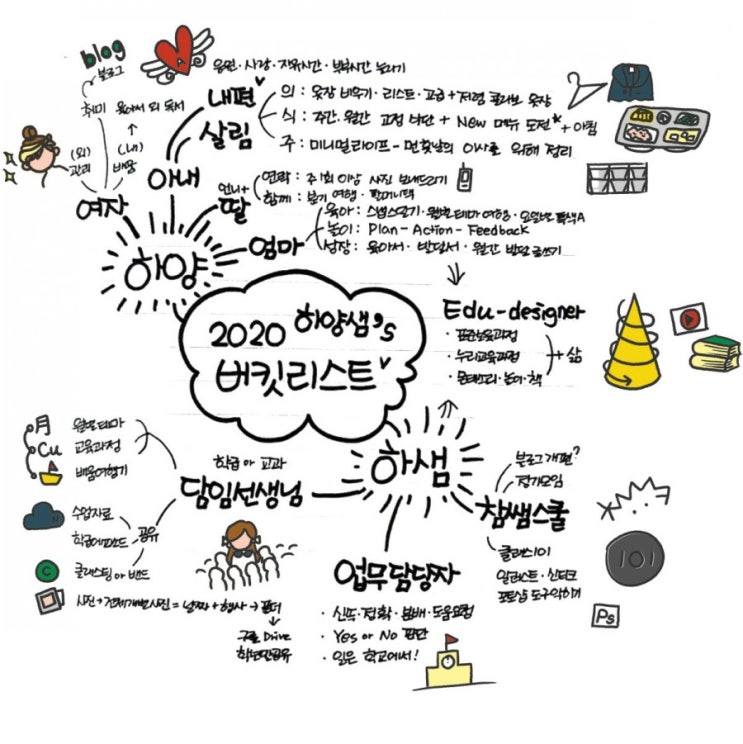 blog
블로그
취미 육아서 외 독서
(외)
관리
(내)
배움
여자
아내
내편
응원·사랑·자유시간·부부시간 늘리기
살림
의 : 옷장 비우기·리스트·고급+저렴 옷장
식 : 주간·월간 고정 식단 + New 메뉴 도전* + 아침
주 : 미니멀라이프 - 먼훗날의 이사를 위해 정리
딸
언니+
연락 : 주1회 이상 사진 보내드리기
함께 : 분기 여행·할머니댁
엄마
육아 : 스냅스일기·월별테마 여행·요일별 특색A
놀이 : Plan - Action - Feedback
성장 : 육아서·발달서·월간 발달 글쓰기
하양
2020 하양쌤's
버킷리스트
Edu-designer
· 표준보육과정
· 누리교육과정
· 몬테소리·놀이·책
+ 삶
하샘
담임선생님
학급 or 교과
月 월별테마
Cu 교육과정
배움여행기
수업자료
공유
C 클래스팅 or 밴드
사진 → 전체개별사진 = 날짜 + 행사 → 폴더
구글 Drive
학년말공유
업무담당자
· 신뜻·정확·분배·도움요청
· Yes or No 판단
· 일은 학교에서!
참쌤스쿨
블로그 개편?
정기모임
클래스101
포토샵 도구익히기
101
Ps